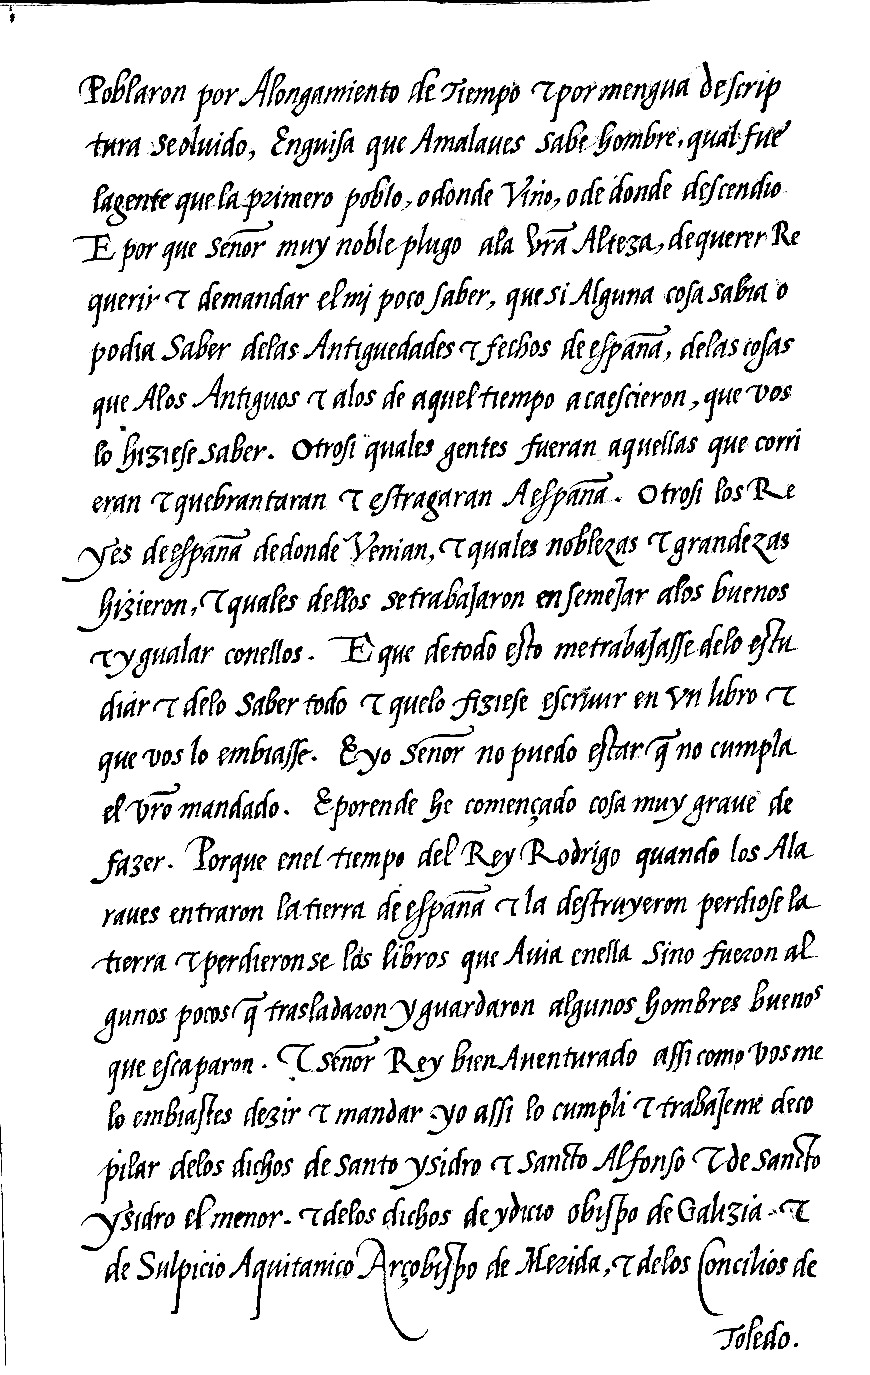 Poblaron por Alongamiento de tiempo ⁊ por mengua de scrip
tura se oluido, Enguisa que Amalaues sabe hombre, qual fue
la gente que la primero poblo, o donde Vino, o de donde descendio
E por que señor muy noble plugo ala vrã Alteza, de querer Re
querir ⁊ demandar el mj poco saber, que si Alguna cosa sabia o
podia Saber delas Antiguedades ⁊ fechos de españa, delas cosas
que Alos Antiguos ⁊ alos de aquel tiempo acaescieron, que vos
lo hiziese saber. Otrosi quales gentes fueran aquellas que corri
eran ⁊ quebrantaran ⁊ estragaran A españa. Otrosi los Re
yes de españa de donde Venian, ⁊ quales noblezas ⁊ grandezas
hizieron, ⁊ quales dellos se trabajaron en semejar alos buenos
⁊ ygualar conellos. E que de todo esto me trabajasse delo estu
diar ⁊ delo saber todo ⁊ quelo fiziese escriuir en vn libro ⁊
que vos lo embiasse. E yo Señor no puedo estar q̃ no cumpla
el vrõ mandado. E porende he començado cosa muy graue de
fazer. Porque enel tiempo del Rey Rodrigo quando los Ala
raues entraron la tierra de españa ⁊ la destruyeron perdiose la
tierra ⁊ perdieronse los libros que Auia enella Sino fueron al
gunos pocos q̃ trasladaron y guardaron algunos hombres buenos
que escaparon. ⁊ Señor Rey bien Auenturado assi como vos me
lo embiastes dezir ⁊ mandar yo assi lo cumpli ⁊ trabajeme deco
pilar delos dichos de santo ysidro ⁊ Sancto Alfonso ⁊ de sancto
ysidro el menor. ⁊ delos dichos de ydicio obispo de Galizia. ⁊
de Sulpicio Aquitanico Arçobispo de Merida, ⁊ delos Concilios de
Toledo.